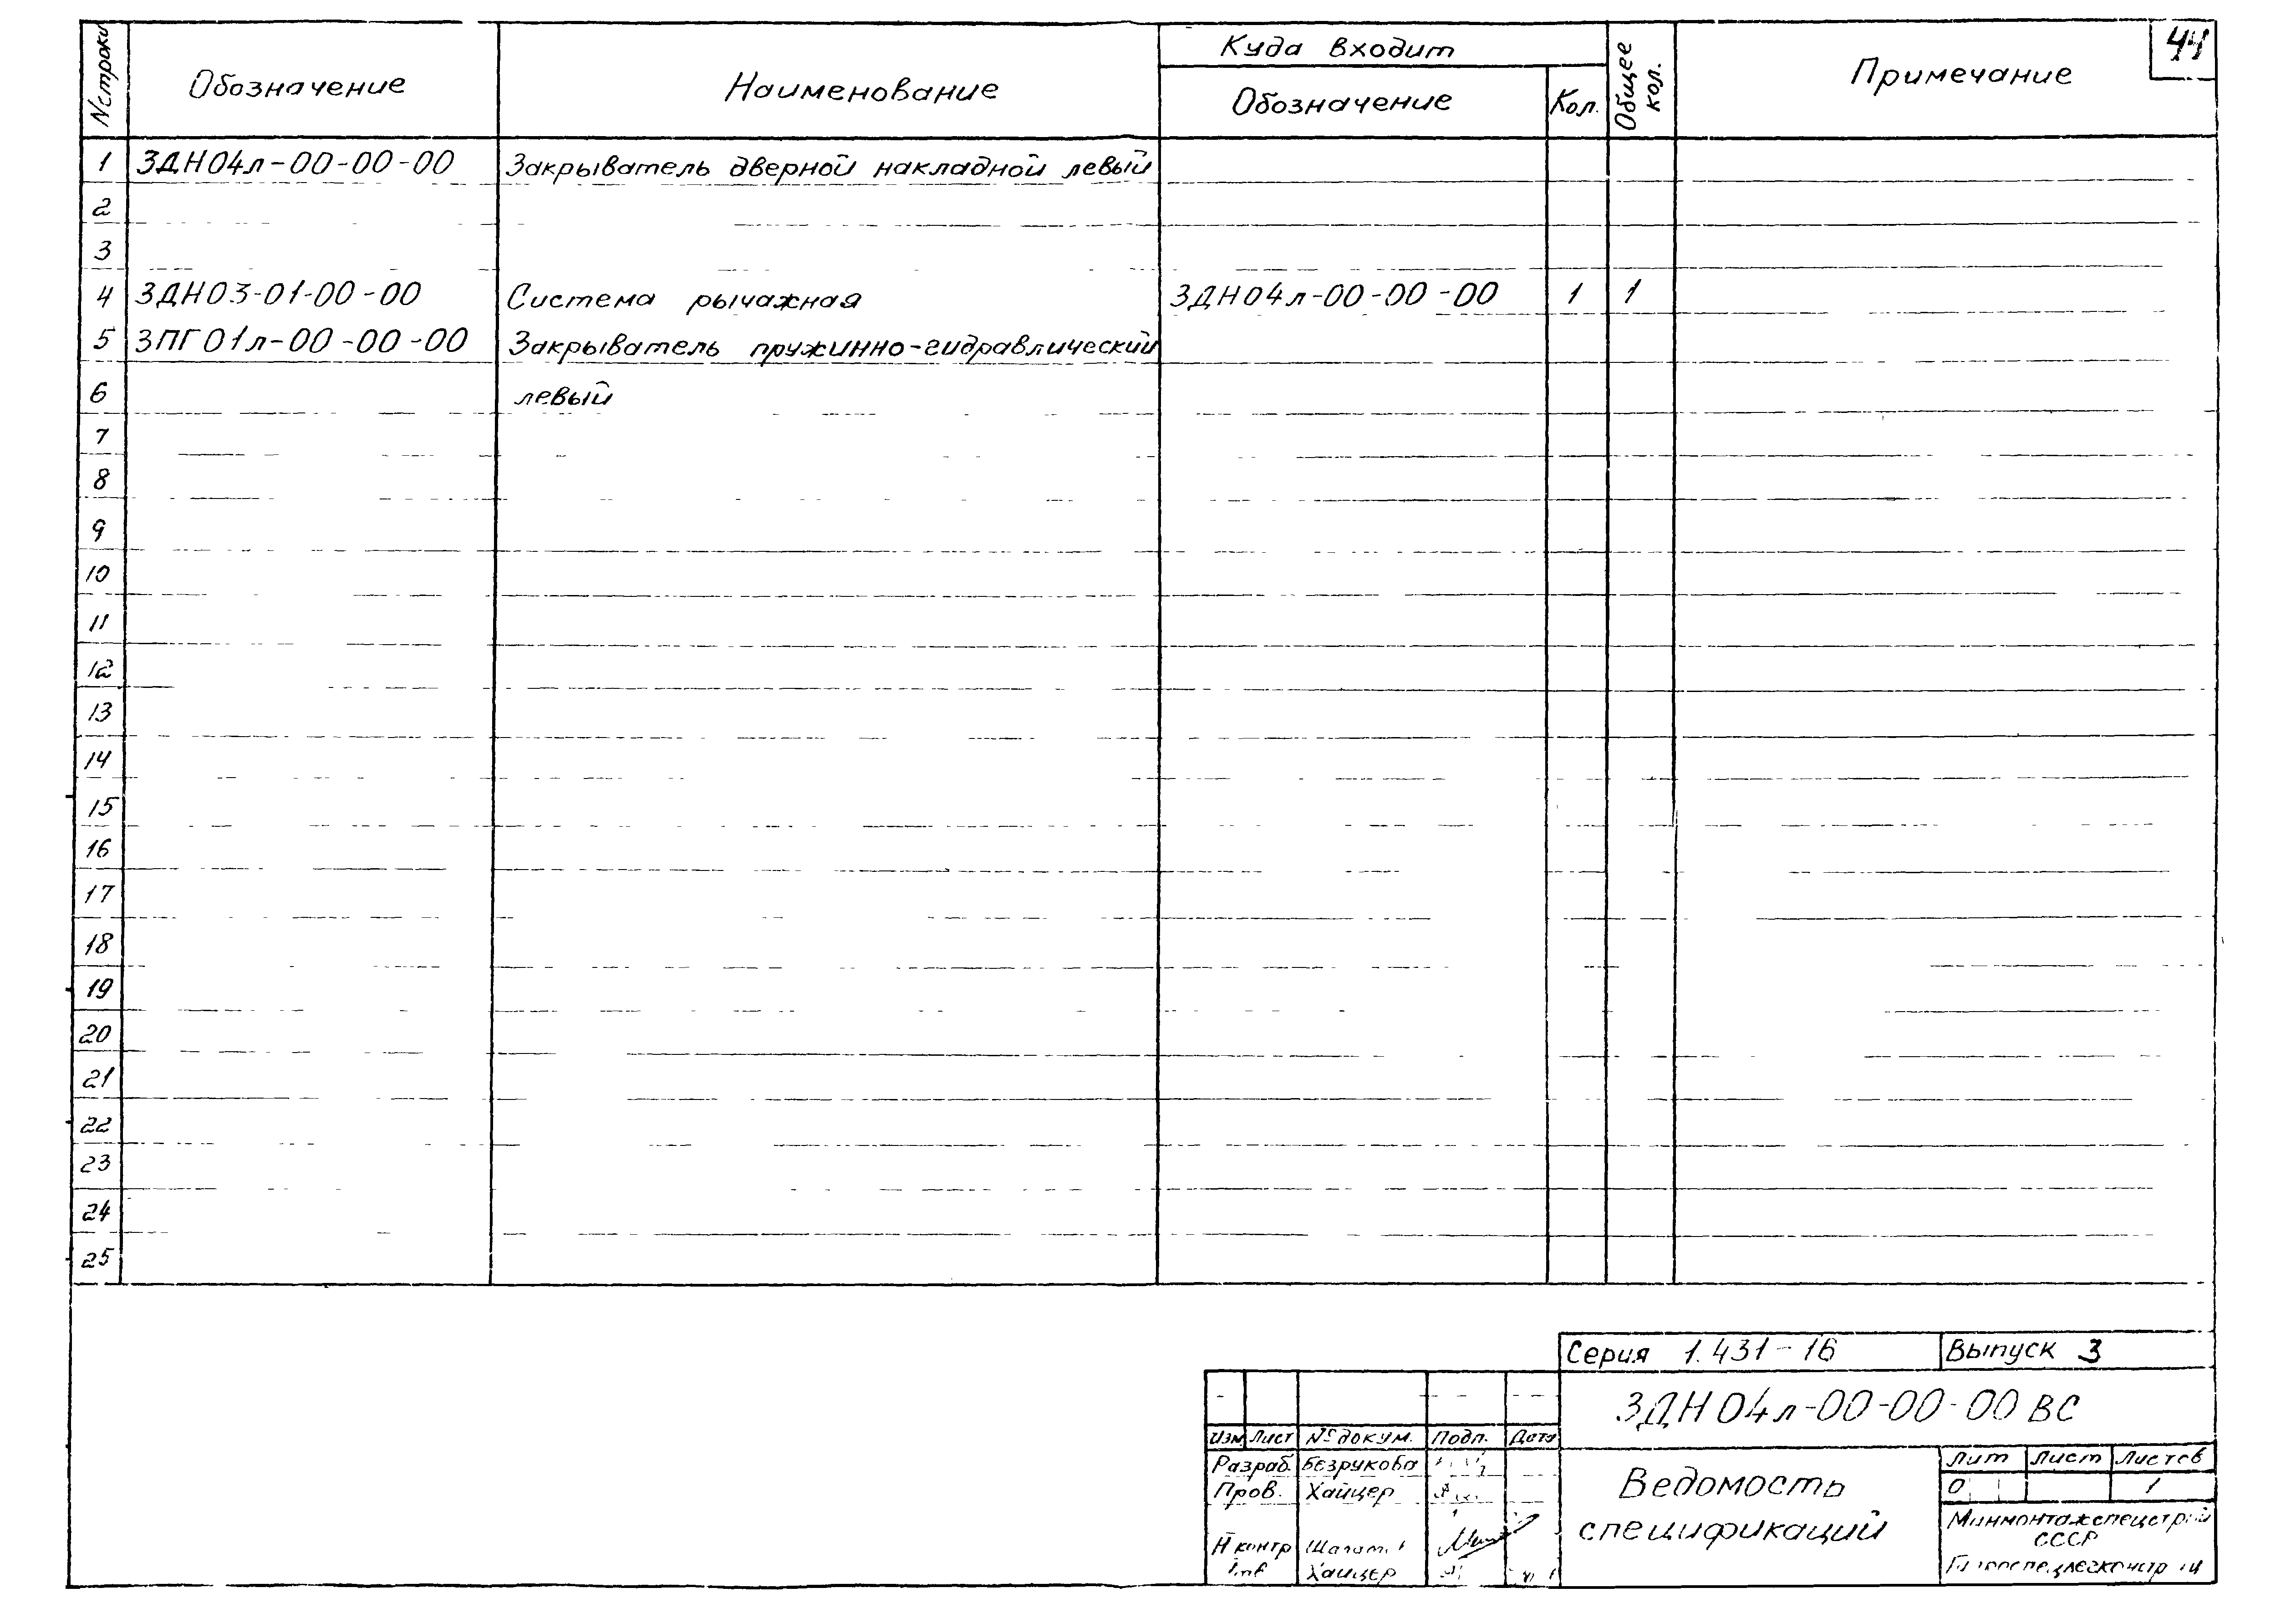 44
№ строки Обозначение Наименование Куда входит Общее кол. Примечание
Обозначение Кол.
1 ЗДН04л-00-00-00 Закрыватель дверной накладной левый
2
3
4 ЗДН03-01-00-00 Система рычажная ЗДН04л-00-00-00 1 1
5 ЗПГ01л-00-00-00 Закрыватель пружинно-гидравлический
6 левый
7
8
9
10
11
12
13
14
15
16
17
18
19
20
21
22
23
24
25
Серия 1.431-16 Выпуск 3
ЗДН04л-00-00-00 ВС
Изм Лист № докум. Подп. Дата
Разраб. Безрукова
Пров. Хайцер
Н контр
Хайцер
Ведомость
спецификаций
Лит Лист Листов
О 1
Минмонтажспецстрой
СССР